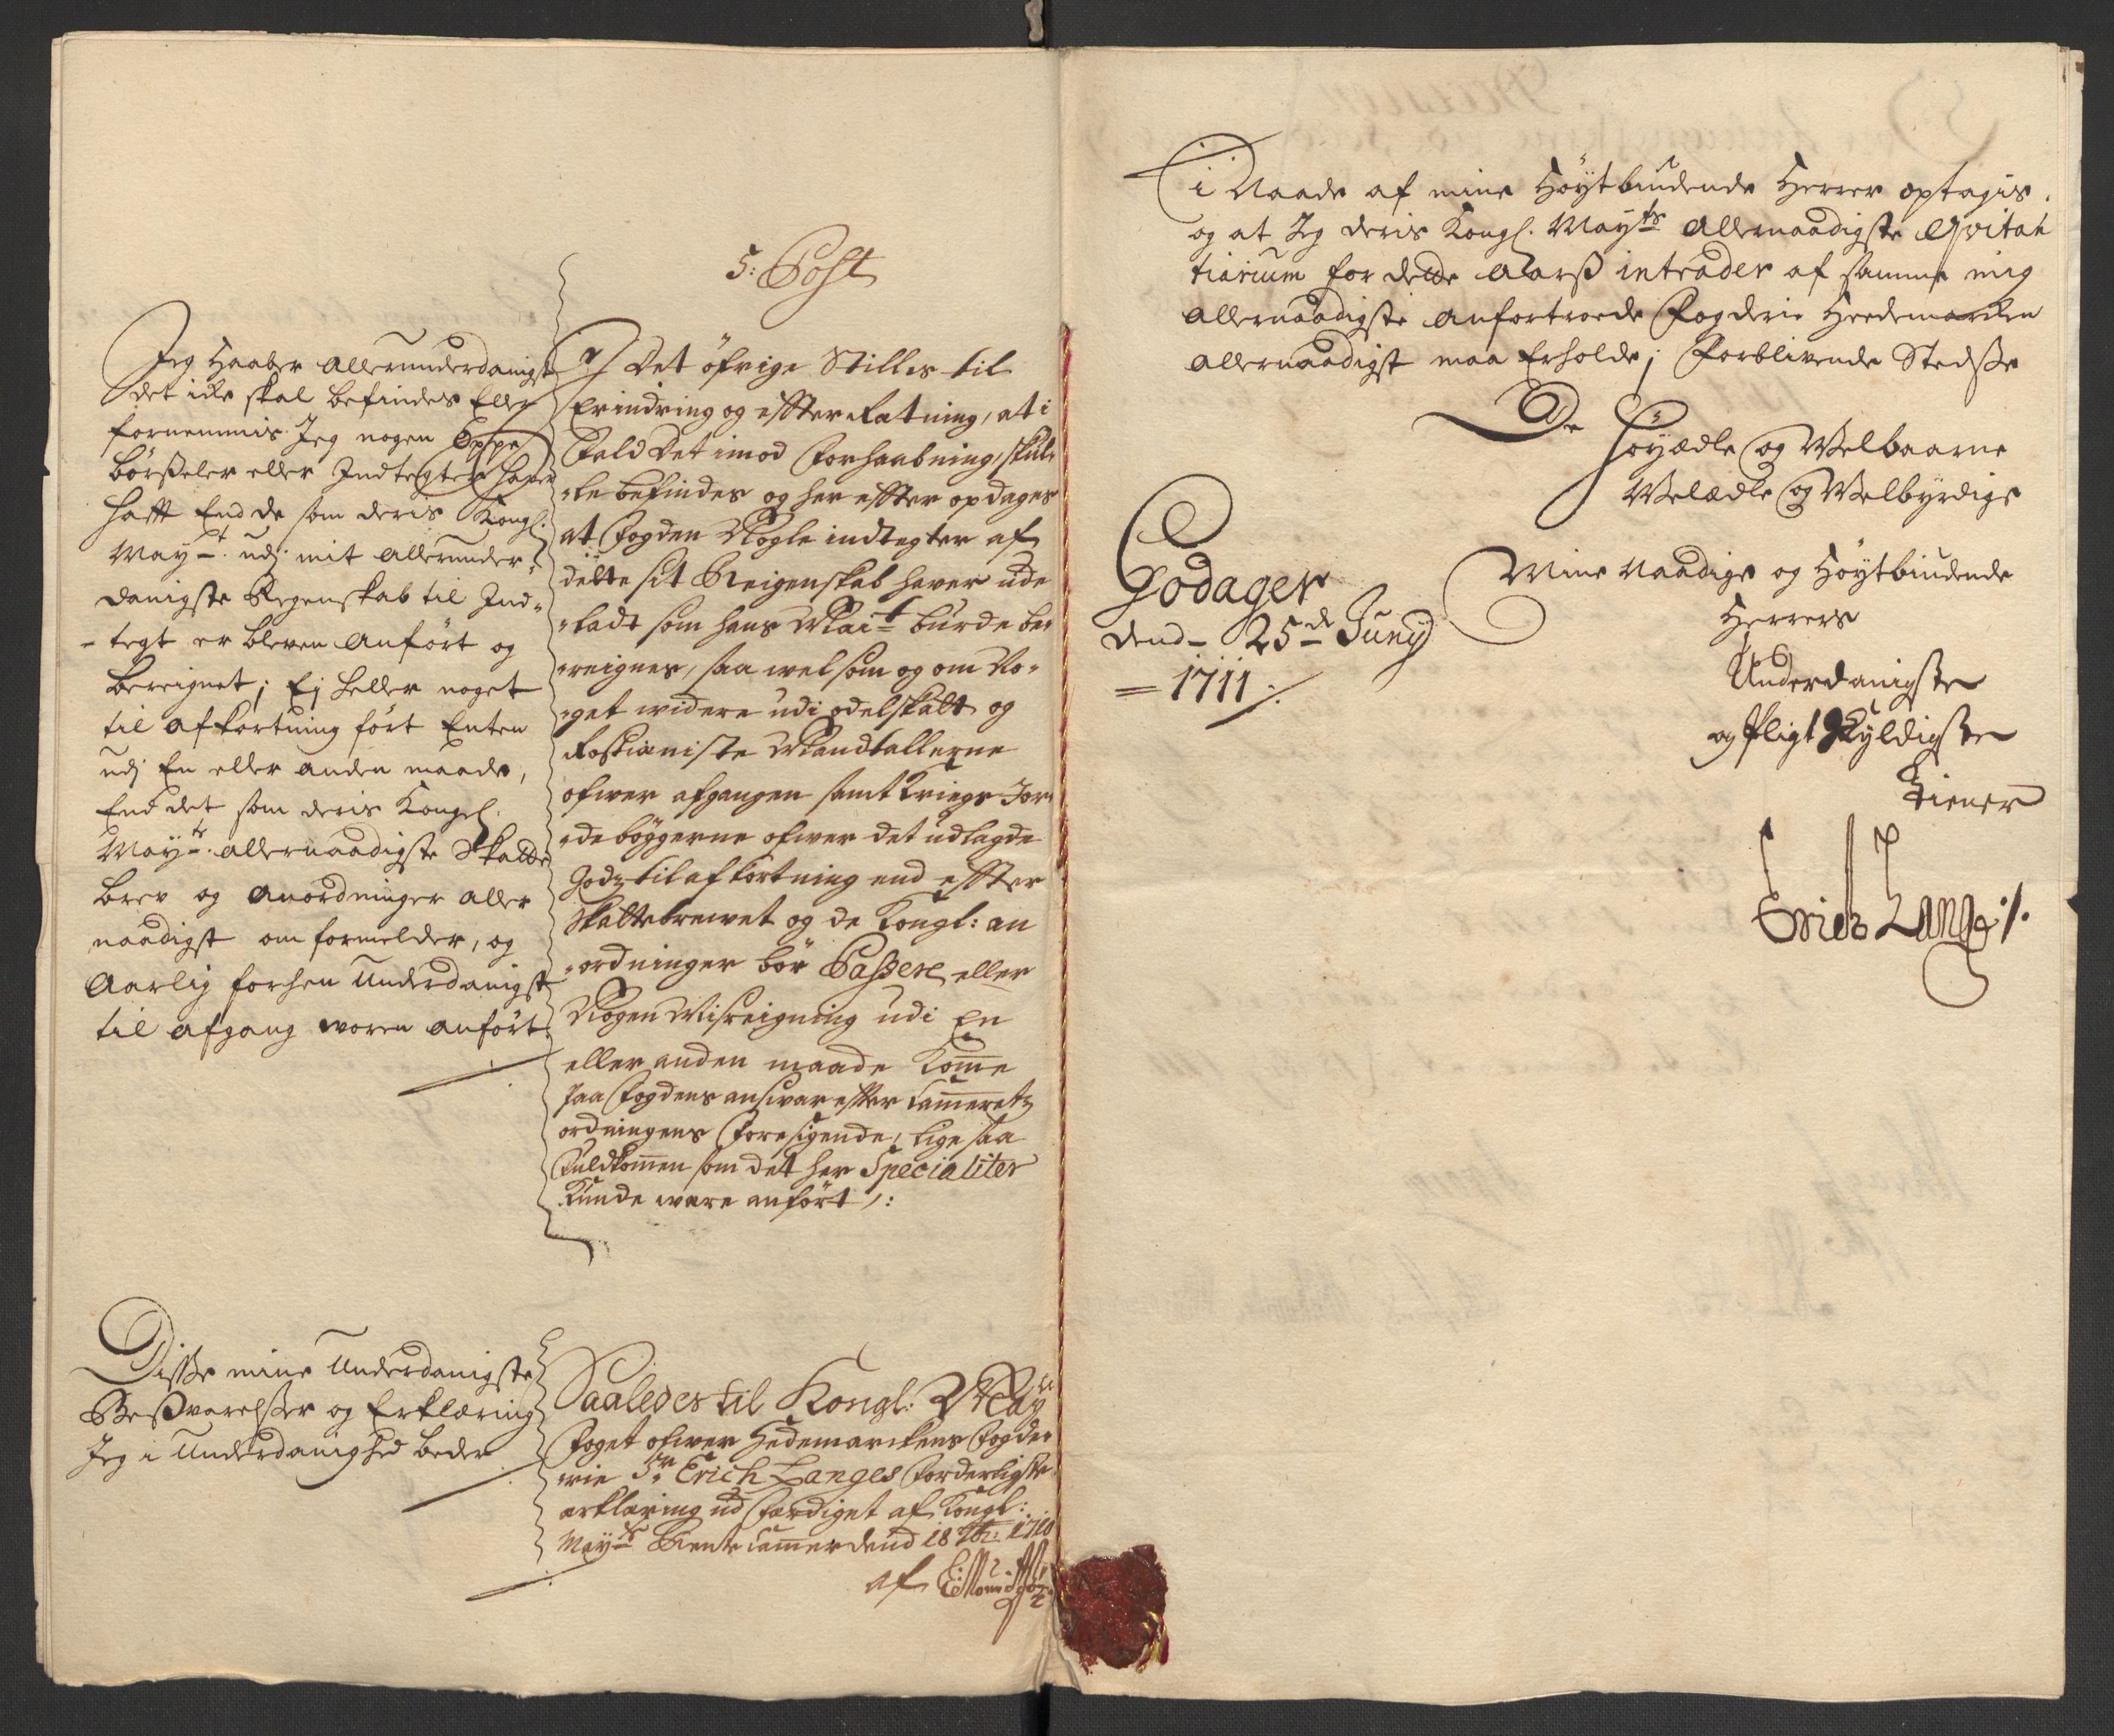 5: Post
Jeg Haaber allerunderdanigst
det icke skal befindes Eller
fornemmis Jeg nogen Oppe
børßeler eller Indtegter haver
hafft End de som deris Kongl.
Mayt. udj mit allerunder-
danigste Regenskab til Ind-
-tegt er bleven anført og
bereignet; Ej heller noget
til afkortning ført Enten
udj En eller anden maade,
End det som deris Kongl.
Mayts. allernaadigste Skatte
brev og anordninger aller
naadigst om formelder, og
Aarlig forhen underdanigst
til afgang voren anført
Det øfrige Stilles til
Erindring og effter Retning, at i
Fald det imod Forhaabning, skul-
-le befindes og her effter opdages
at Fogden Nogle indtegter af
dette sit Reigenskab haver ude
-ladt som hans Mait burde be-
-reignes, saa vel som og om No-
-get widere udi odelskatt og
Rostieniste Mandtallerne
ofwer afgangen samt Kriegs Jor-
-debøggerne ofwer det udlagde
Godz til afkortning end effter
Skattebrewet og de Kongl: an
-ordninger bør Passere eller
Nogen Misreigning udi En
eller anden maade Komme
paa Fogdens answar effter Cammeretz
ordningens Foresigende, lige saa
Fuldkommen som det her Specialiter
Kunde være anført /:
Disse mine underdanigste
Besvarelsser og Erklæring
Jeg i underdanighed beder
Saaledes til Kongl: Mayts
Foget ofwer Hedemarckens Fogde-
-rie Sr Erich Langes Forderligste
erklæring ud Færdiget af Kongl:
Mayts Rente Cammer dend 18 1710
af
i Naade af mine Høytbiudende Herrer optagis,
og at Jeg deris Kongl. Mayts allernaadigste Qvitan
tiarium for dette Aarß intrader af samme mig
allernaadigste anfortroede Fogderie Heedemarcken
allernaadigst maa Erholde; Forblivende Stedsse
De
Høyædle og Welbaarne
Velædle og Welbyrdige
Mine Naadige og Høytbiudende
Herrers
Underdanigste
og Pligtskyldigste
Tiener
Erich Lange ./.
Godager
dend- 25de Juny
= 1711 :